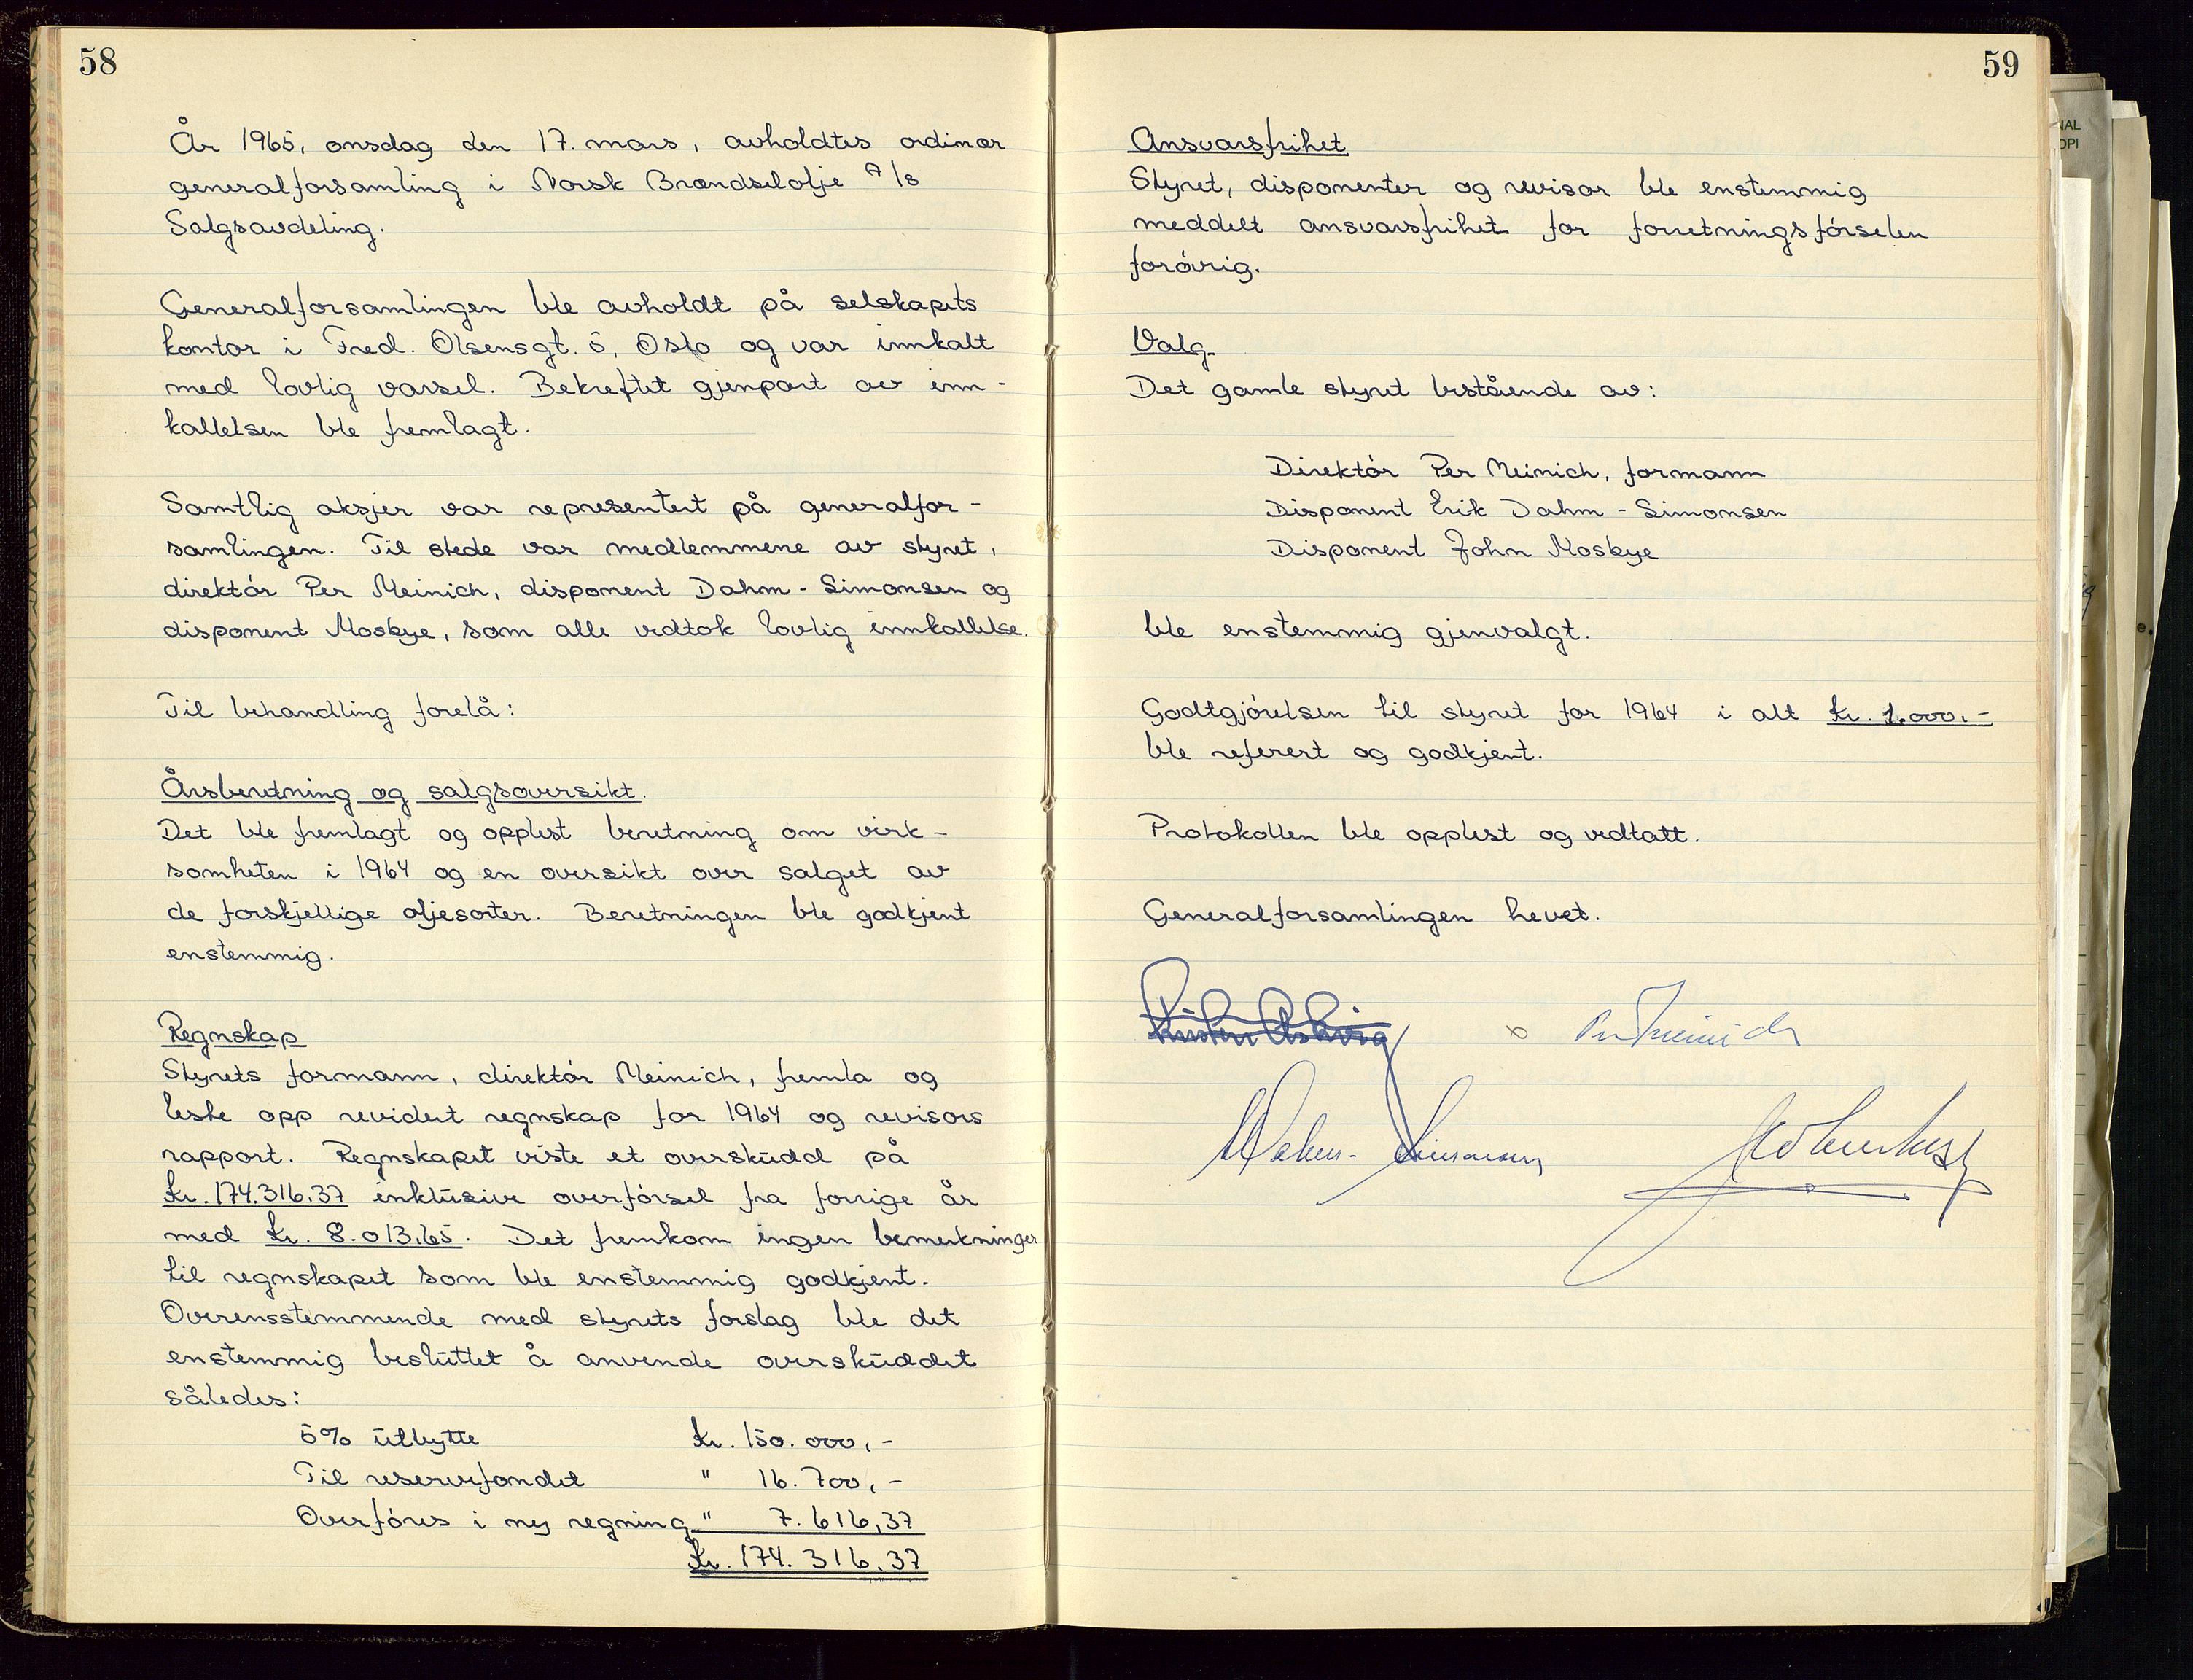 58
År 1965, onsdag den 17. mars, avholdtes ordinær
generalforsamling i Norsk Brændselolje A/S
Salgsavdeling.
Generalforsamlingen ble avholdt på selskapets
kontor i Fred. Olsensgt. 5, Oslo og var innkalt
med lovlig varsel. Bekreftet gjenpart av inn-
kallelsen ble fremlagt.
Samtlig aksjer var representert på generalfor-
samlingen. Til stede var medlemmene av styret,
direktør Per Meinich, disponent Dahm-Simonsen og
disponent Moskye, som alle vedtok lovlig innkallelse.
Til behandling forelå:
Årsberetning og salgsoversikt.
Det ble fremlagt og opplest beretning om virk-
somheten i 1964 og en oversikt over salget av
de forskjellige oljesorter. Beretningen ble godkjent
enstemmig.
Regnskap
Styrets formann, direktør Meinich, fremla og
leste opp revidert regnskap for 1964 og revisors
rapport. Regnskapet viste et overskudd på
Kr. 174.316,37 inklusive overførsel fra forrige år
med Kr. 8.013,65. Det fremkom ingen bemerkninger
til regnskapet som ble enstemmig godkjent.
Overensstemmende med styrets forslag ble det
enstemmig besluttet å anvende overskuddet
således:
5% utbytte Kr. 150.000,-
Til reservefondet " 16.700,-
Overføres i ny regning " 7.616,37
Kr. 174.316,37
59
Ansvarsfrihet
Styret, disponenter og revisor ble enstemmig
meddelt ansvarsfrihet for forretningsførselen
forøvrig.
Valg
Det gamle styret bestående av:
Direktør Per Meinich, formann
Disponent Erik Dahm-Simonsen
Disponent John Moskye
ble enstemmig gjenvalgt.
Godtgjørelsen til styret for 1964 i alt Kr. 1.000.-
ble referert og godkjent.
Protokollen ble opplest og vedtatt.
Generalforsamlingen hevet.
Per Meinich
Dahm-Simonsen